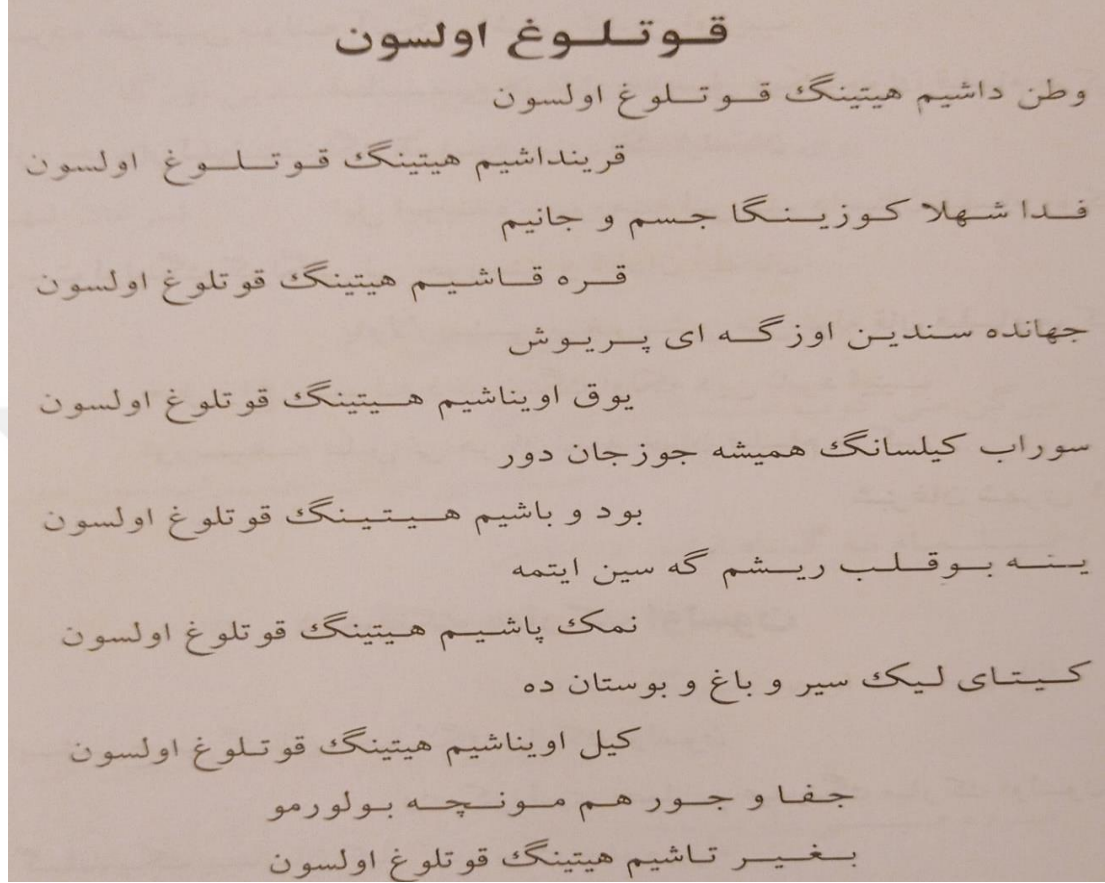 قوتلوغ اولسون
وطن داشیم هیتینگ قوتلوغ اولسون
قرینداشیم هیتینگ قوتلوغ اولسون
فدا شهلا کوزینگا جسم و جانیم
قره قاشیم هیتینگ قوتلوغ اولسون
جهانده سندین اوزگه ای پریوش
یوق اویناشیم هیتینگ قوتلوغ اولسون
سوراب کیلسانگ همیشه جوزجان دور
بود و باشیم هیتینگ قوتلوغ اولسون
ینه بوقلب ریشم گه سین ایتمه
نمک پاشیم هیتینگ قوتلوغ اولسون
کیتای لیک سیر و باغ و بوستان ده
کیل اویناشیم هیتینگ قوتلوغ اولسون
جفا و جور هم مونچه بولورمو
بغیر تاشیم هیتینگ قوتلوغ اولسون